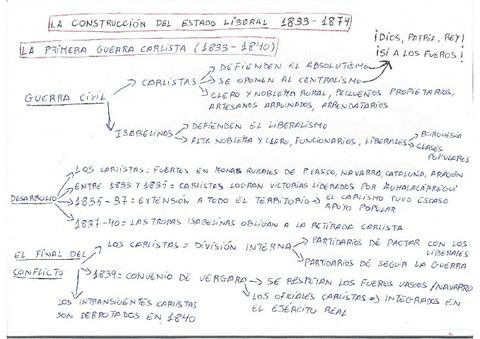 LA CONSTRUCCIÓN DEL ESTADO LIBERAL 1833-1874
¡DIOS, PATRIA, REY!
¡SÍ A LOS FUEROS!
LA PRIMERA GUERRA CARLISTA (1833-1840)
DEFIENDEN EL ABSOLUTISMO
CARLISTAS
SE OPONEN AL CENTRALISMO
CLERO Y NOBLEZA RURAL, PEQUEÑOS PROPIETARIOS,
ARTESANOS ARRUINADOS, ARRENDATARIOS
GUERRA CIVIL
ISABELINOS
DEFIENDEN EL LIBERALISMO
ALTA NOBLEZA Y CLERO, FUNCIONARIOS, LIBERALES
BURGUESÍA
CLASES
POPULARES
LOS CARLISTAS = FUERTES EN ZONAS RURALES DE P. VASCO, NAVARRA, CATALUÑA, ARAGÓN
ENTRE 1833 Y 1835 = CARLISTAS LOGRAN VICTORIAS LIDERADOS POR ZUMALACÁRREGUI
DESARROLLO
1835-37 = EXTENSIÓN A TODO EL TERRITORIO
EL CARLISMO TUVO ESCASO
APOYO POPULAR
1837-40 = LAS TROPAS ISABELINAS OBLIGAN A LA RETIRADA CARLISTA
EL FINAL DEL
CONFLICTO
LOS CARLISTAS = DIVISIÓN INTERNA
PARTIDARIOS DE PACTAR CON LOS
LIBERALES
PARTIDARIOS DE SEGUIR LA GUERRA
1839 = CONVENIO DE VERGARA
SE RESPETAN LOS FUEROS VASCOS/NAVARRO
LOS OFICIALES CARLISTAS => INTEGRADOS EN
EL EJÉRCITO REAL
LOS INTRANSIGENTES CARLISTAS
SON DERROTADOS EN 1840